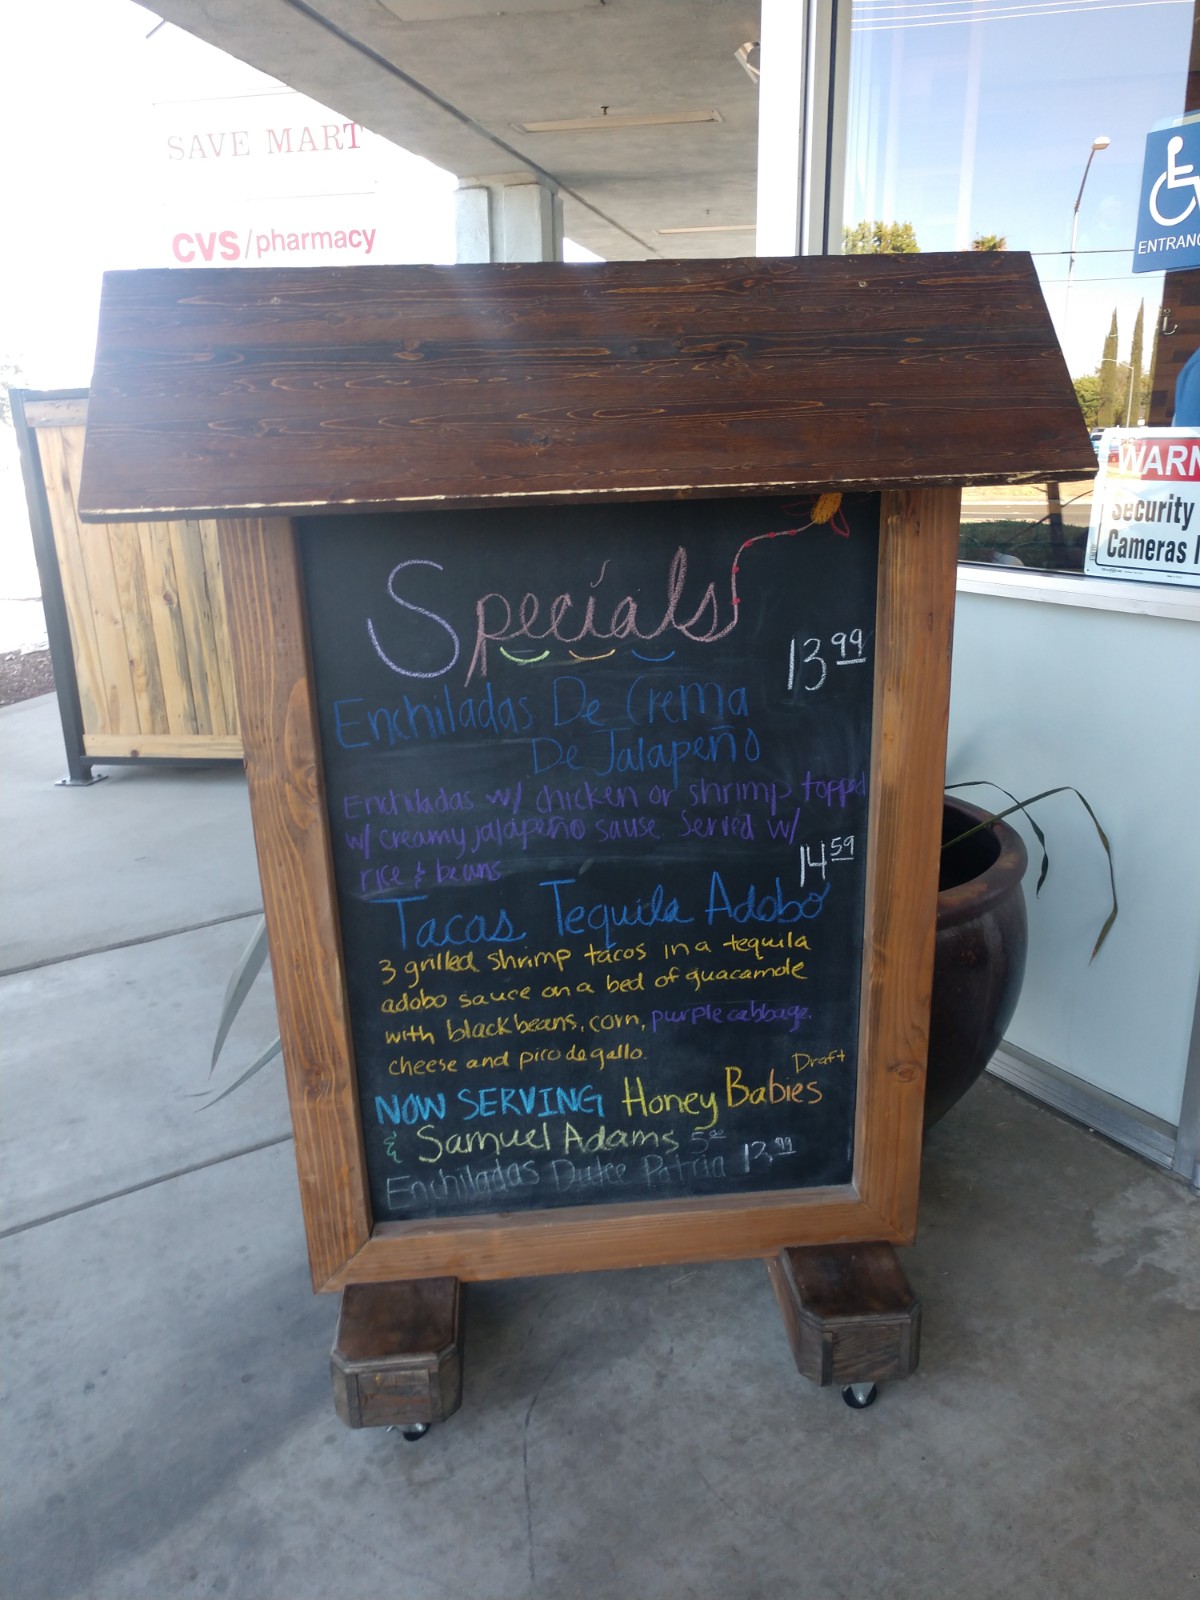 SAVE MART
CVS/pharmacy
ENTRANC
WARN
Security
Cameras I
Specials
13 99
Enchiladas De Crema
De Jalapeño
Enchiladas w/ chicken or shrimp topped
w/ creamy jalapeño sause. Served w/
rice & beans
14 59
Tacas Tequila Adobo
3 grilled shrimp tacos in a tequila
adobo sauce on a bed of guacamole
with black beans, corn, purple cabbage.
cheese and pico de gallo.
Draft
NOW SERVING Honey Babies
& Samuel Adams 5
Enchiladas Dulce Patria 13.99